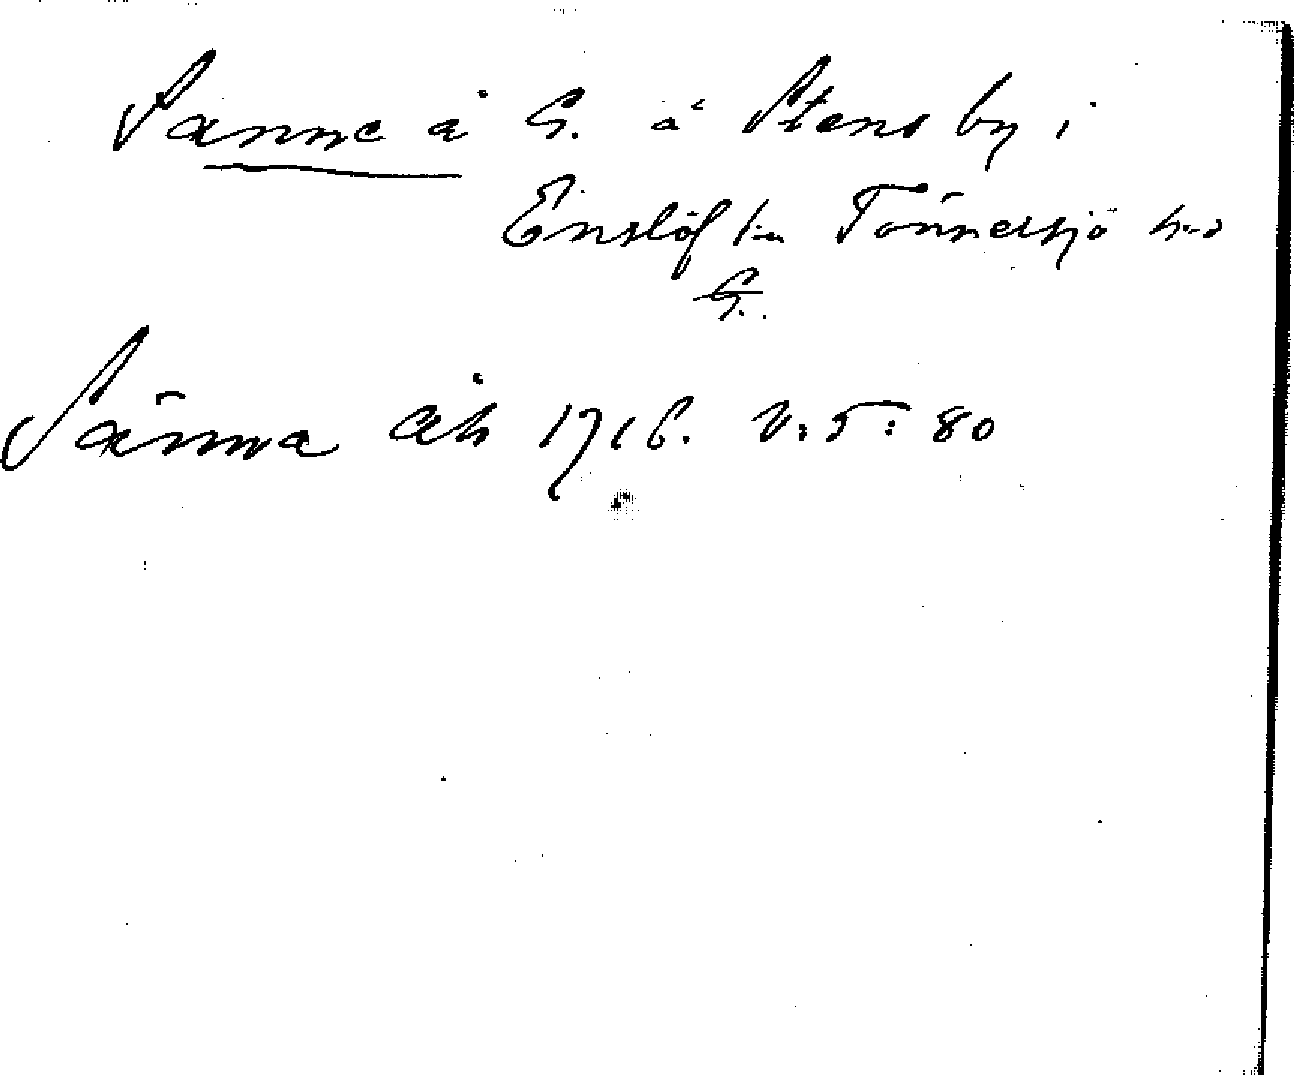 Sanne å G. å Stensby i
Enslöf sn Tönnersjö hd
G.
Sänna åh 1716. V:5:80